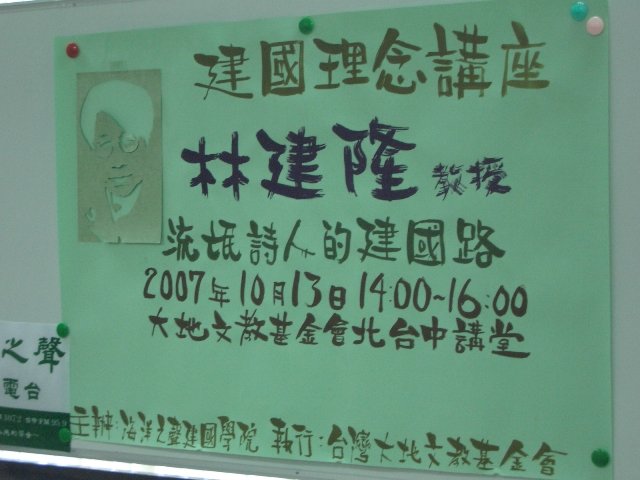 建國理念講座
林建隆 教授
流氓詩人的建國路
2007年10月13日 14:00~16:00
大地文教基金會北台中講堂
主辦:海洋之聲建國學院 執行:台灣大地文教基金會
之聲
電台